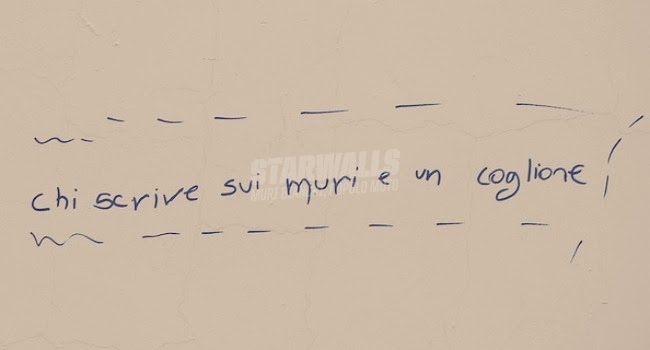 STARWALLS
chi scrive sui muri e un coglione